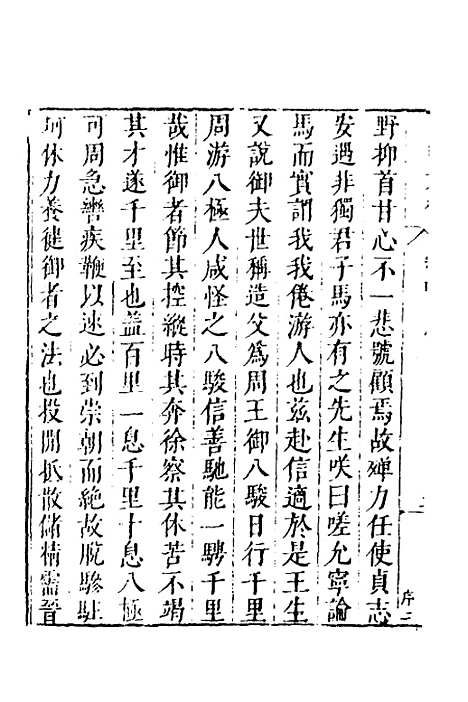 野抑首甘心不一悲號顧焉故殫力任使貞志
安遇非獨君子馬亦有之先生咲曰嗟允寧論
馬而實謂我我倦游人也茲赴信適於是王生
又說御夫世稱造父為周王御八駿日行千里
周游八極人咸怪之八駿信善馳能一騁千里
哉惟御者節其控縱時其奔徐察其休苦不竭
其才遂千里至也葢百里一息千里十息八極
可周急轡疾鞭以速必到崇朝而絶故脫驂駐
坰休力養健御者之法也投閒抵散儲精需晉
序二